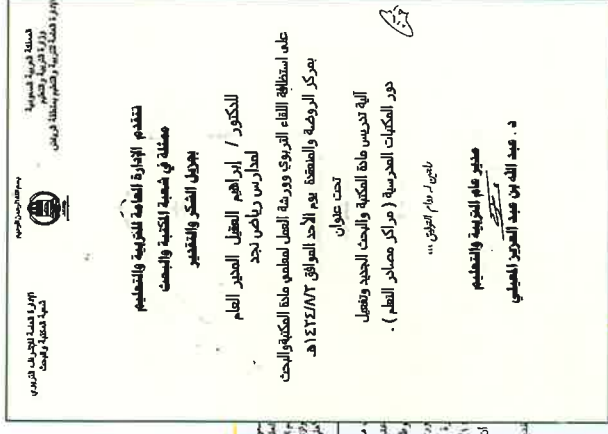 بسم الله الرحمن الرحيم
المملكة العربية السعودية
وزارة التربية والتعليم
الإدارة العامة للتربية والتعليم بمنطقة الرياض
الإدارة العامة للإشراف التربوي
شعبة المكتبة والبحث
تتقدم الإدارة العامة للتربية والتعليم
ممثلة في شعبة المكتبة والبحث
بجزيل الشكر والتقدير
للدكتور / إبراهيم العقيل المدير العام
لمدارس رياض نجد
على استظافة اللقاء التربوي وورشة العمل لمعلمي مادة المكتبة والبحث
بمركز الروضة والمنعقدة يوم الأحد الموافق ١٤٢٤/٨/٢هـ
تحت عنوان
آلية تدريس مادة المكتبة والبحث الجديد وتفعيل
دور المكتبات المدرسية ( مراكز مصادر التعلم ) .
راجين لهم دوام التوفيق ...
مدير عام التربية والتعليم
د . عبد الله بن عبد العزيز المعيلي